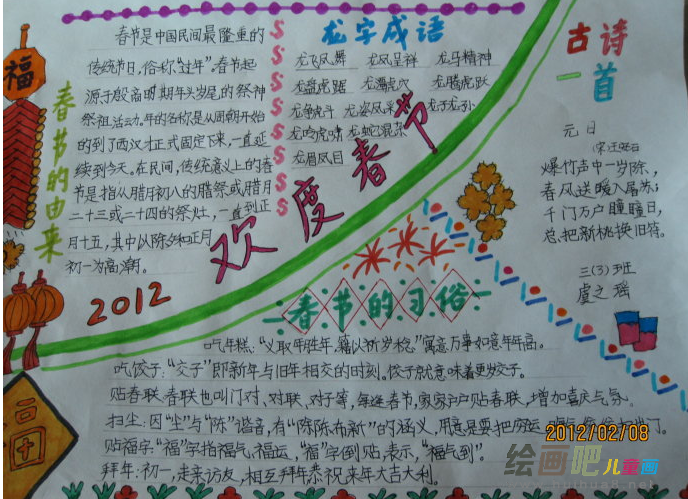 福
春节的由来
春节是中国民间最隆重的
传统节日,俗称“过年”。春节起
源于殷商时期年头岁尾的祭神
祭祖活动。年的名称是从周朝开始
的到了西汉才正式固定下来,一直延
续到今天。在民间,传统意义上的春
节是指从腊月初八的腊祭或腊月
二十三或二十四的祭灶,一直到正
月十五,其中以除夕和正月
初一为高潮。
2012
龙字成语
龙飞凤舞 龙凤呈祥 龙马精神
龙盘虎踞 龙潭虎穴 龙腾虎跃
龙争虎斗 龙姿凤采 龙子龙孙
龙吟虎啸 龙蛇混杂
龙眉凤目
欢度春节
古诗
一首
元日
爆竹声中一岁除,
春风送暖入屠苏;
千门万户瞳瞳日,
总把新桃换旧符。
三(3)班
虞之瑶
春节的习俗
吃年糕:“义取年胜年,籍以祈岁稔。”寓意万事如意年年高。
吃饺子:“交子”即新年与旧年相交的时刻。饺子就意味着更岁交子。
贴春联:春联也叫门对、对联、对子等,每逢春节,家家户户贴春联,增加喜庆气氛。
扫尘:因“尘”与“陈”谐音,有“除陈布新”的涵义,用意是要把穷运
贴福字:“福”字指福气、福运,“福”字倒贴,表示,“福气到”。
拜年:初一,走亲访友,相互拜年恭祝来年大吉大利。
2012/02/08
绘画吧 儿童画